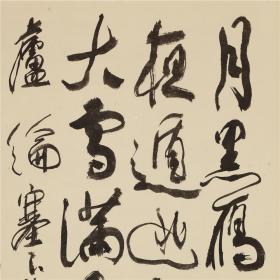 月黑雁
夜遁逃
大雪满
盧綸塞下